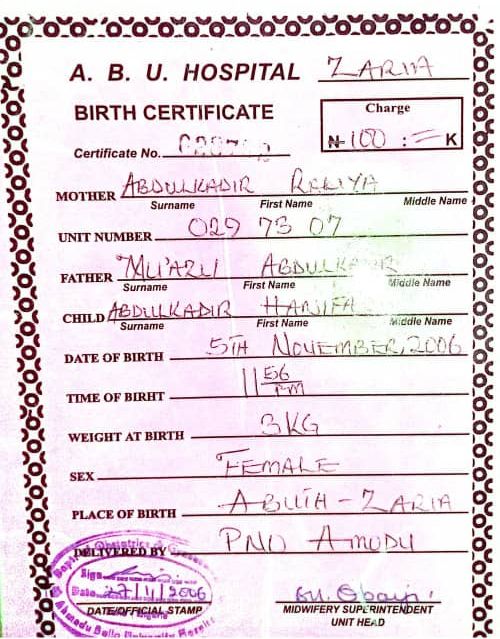 A. B. U. HOSPITAL ZARIA
BIRTH CERTIFICATE
Charge
₦ 100 : = K
Certificate No.
MOTHER ABDULKADIR RAKIYA
Surname First Name Middle Name
UNIT NUMBER 029 73 07
FATHER MU'AZU ABDULKADIR
Surname First Name Middle Name
CHILD ABDULKADIR HANIFA
Surname First Name Middle Name
DATE OF BIRTH 5TH NOVEMBER, 2006
TIME OF BIRHT 11 56 PM
WEIGHT AT BIRTH 3KG
SEX FEMALE
PLACE OF BIRTH ABUTH - ZARIA
DELIVERED BY PNO AMODU
Sign
Date 27/11/2006
DATE/OFFICIAL STAMP
Ahmadu Bello University
MIDWIFERY SUPERINTENDENT
UNIT HEAD